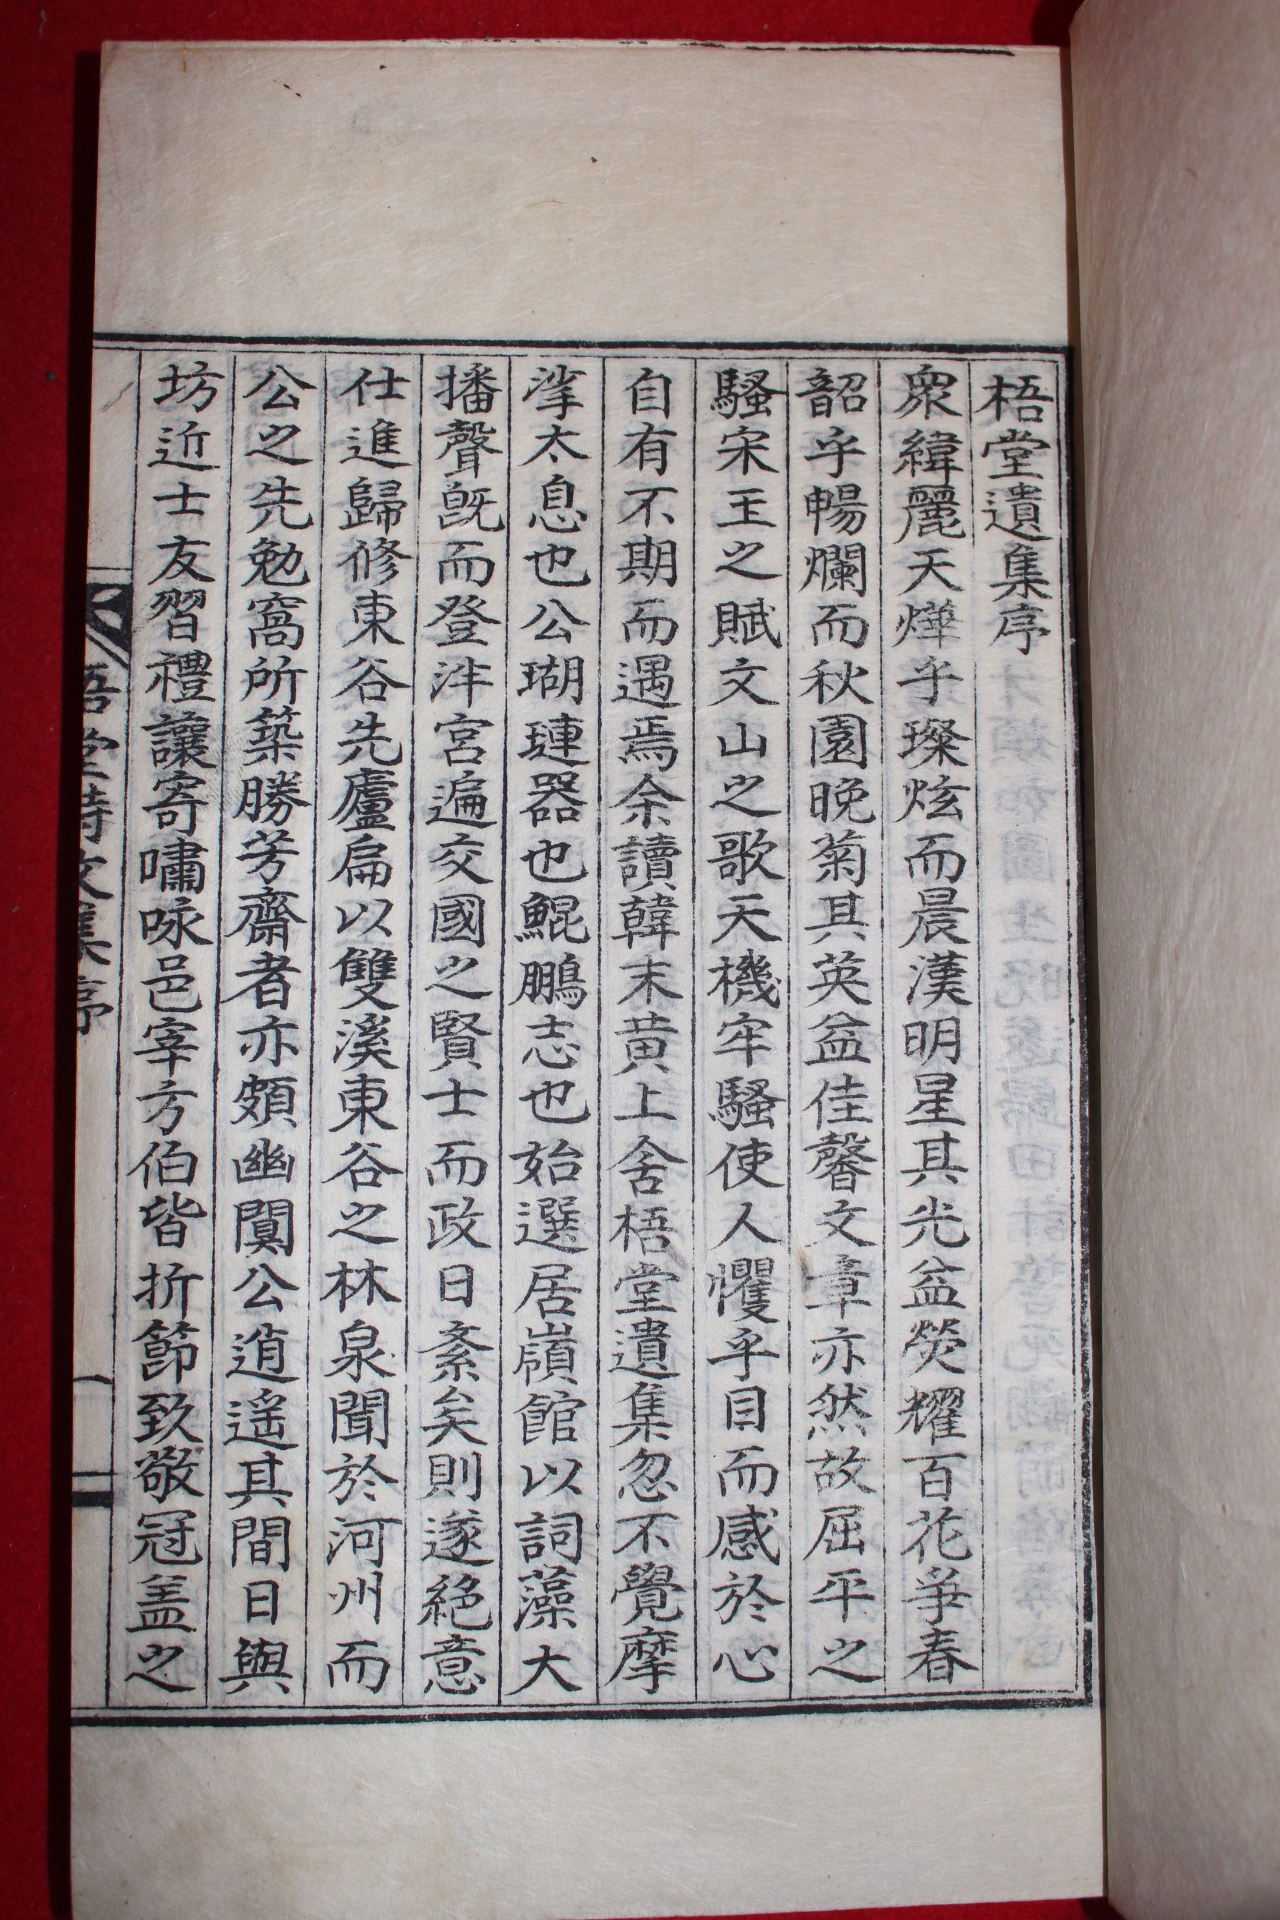 梧堂遺集序
衆緯麗天燁乎璨炫而晨漢明星其光益熒耀百花爭春
韶乎暢爛而秋園晚菊其英益佳馨文章亦然故屈平之
騷宋玉之賦文山之歌天機牢騷使人懼乎目而感於心
自有不期而遇焉余讀韓末黃上舍梧堂遺集忽不覺摩
挲太息也公瑚璉器也鯤鵬志也始選居嶺館以詞藻大
播聲旣而登泮宮遍交國之賢士而政日紊矣則遂絕意
仕進歸修東谷先廬扁以雙溪東谷之林泉聞於河州而
公之先勉窩所築勝芳齋者亦頗幽闃公逍遙其間日與
坊近士友習禮讓寄嘯咏邑宰方伯皆折節致敬冠盖之
梧堂詩文集序
一